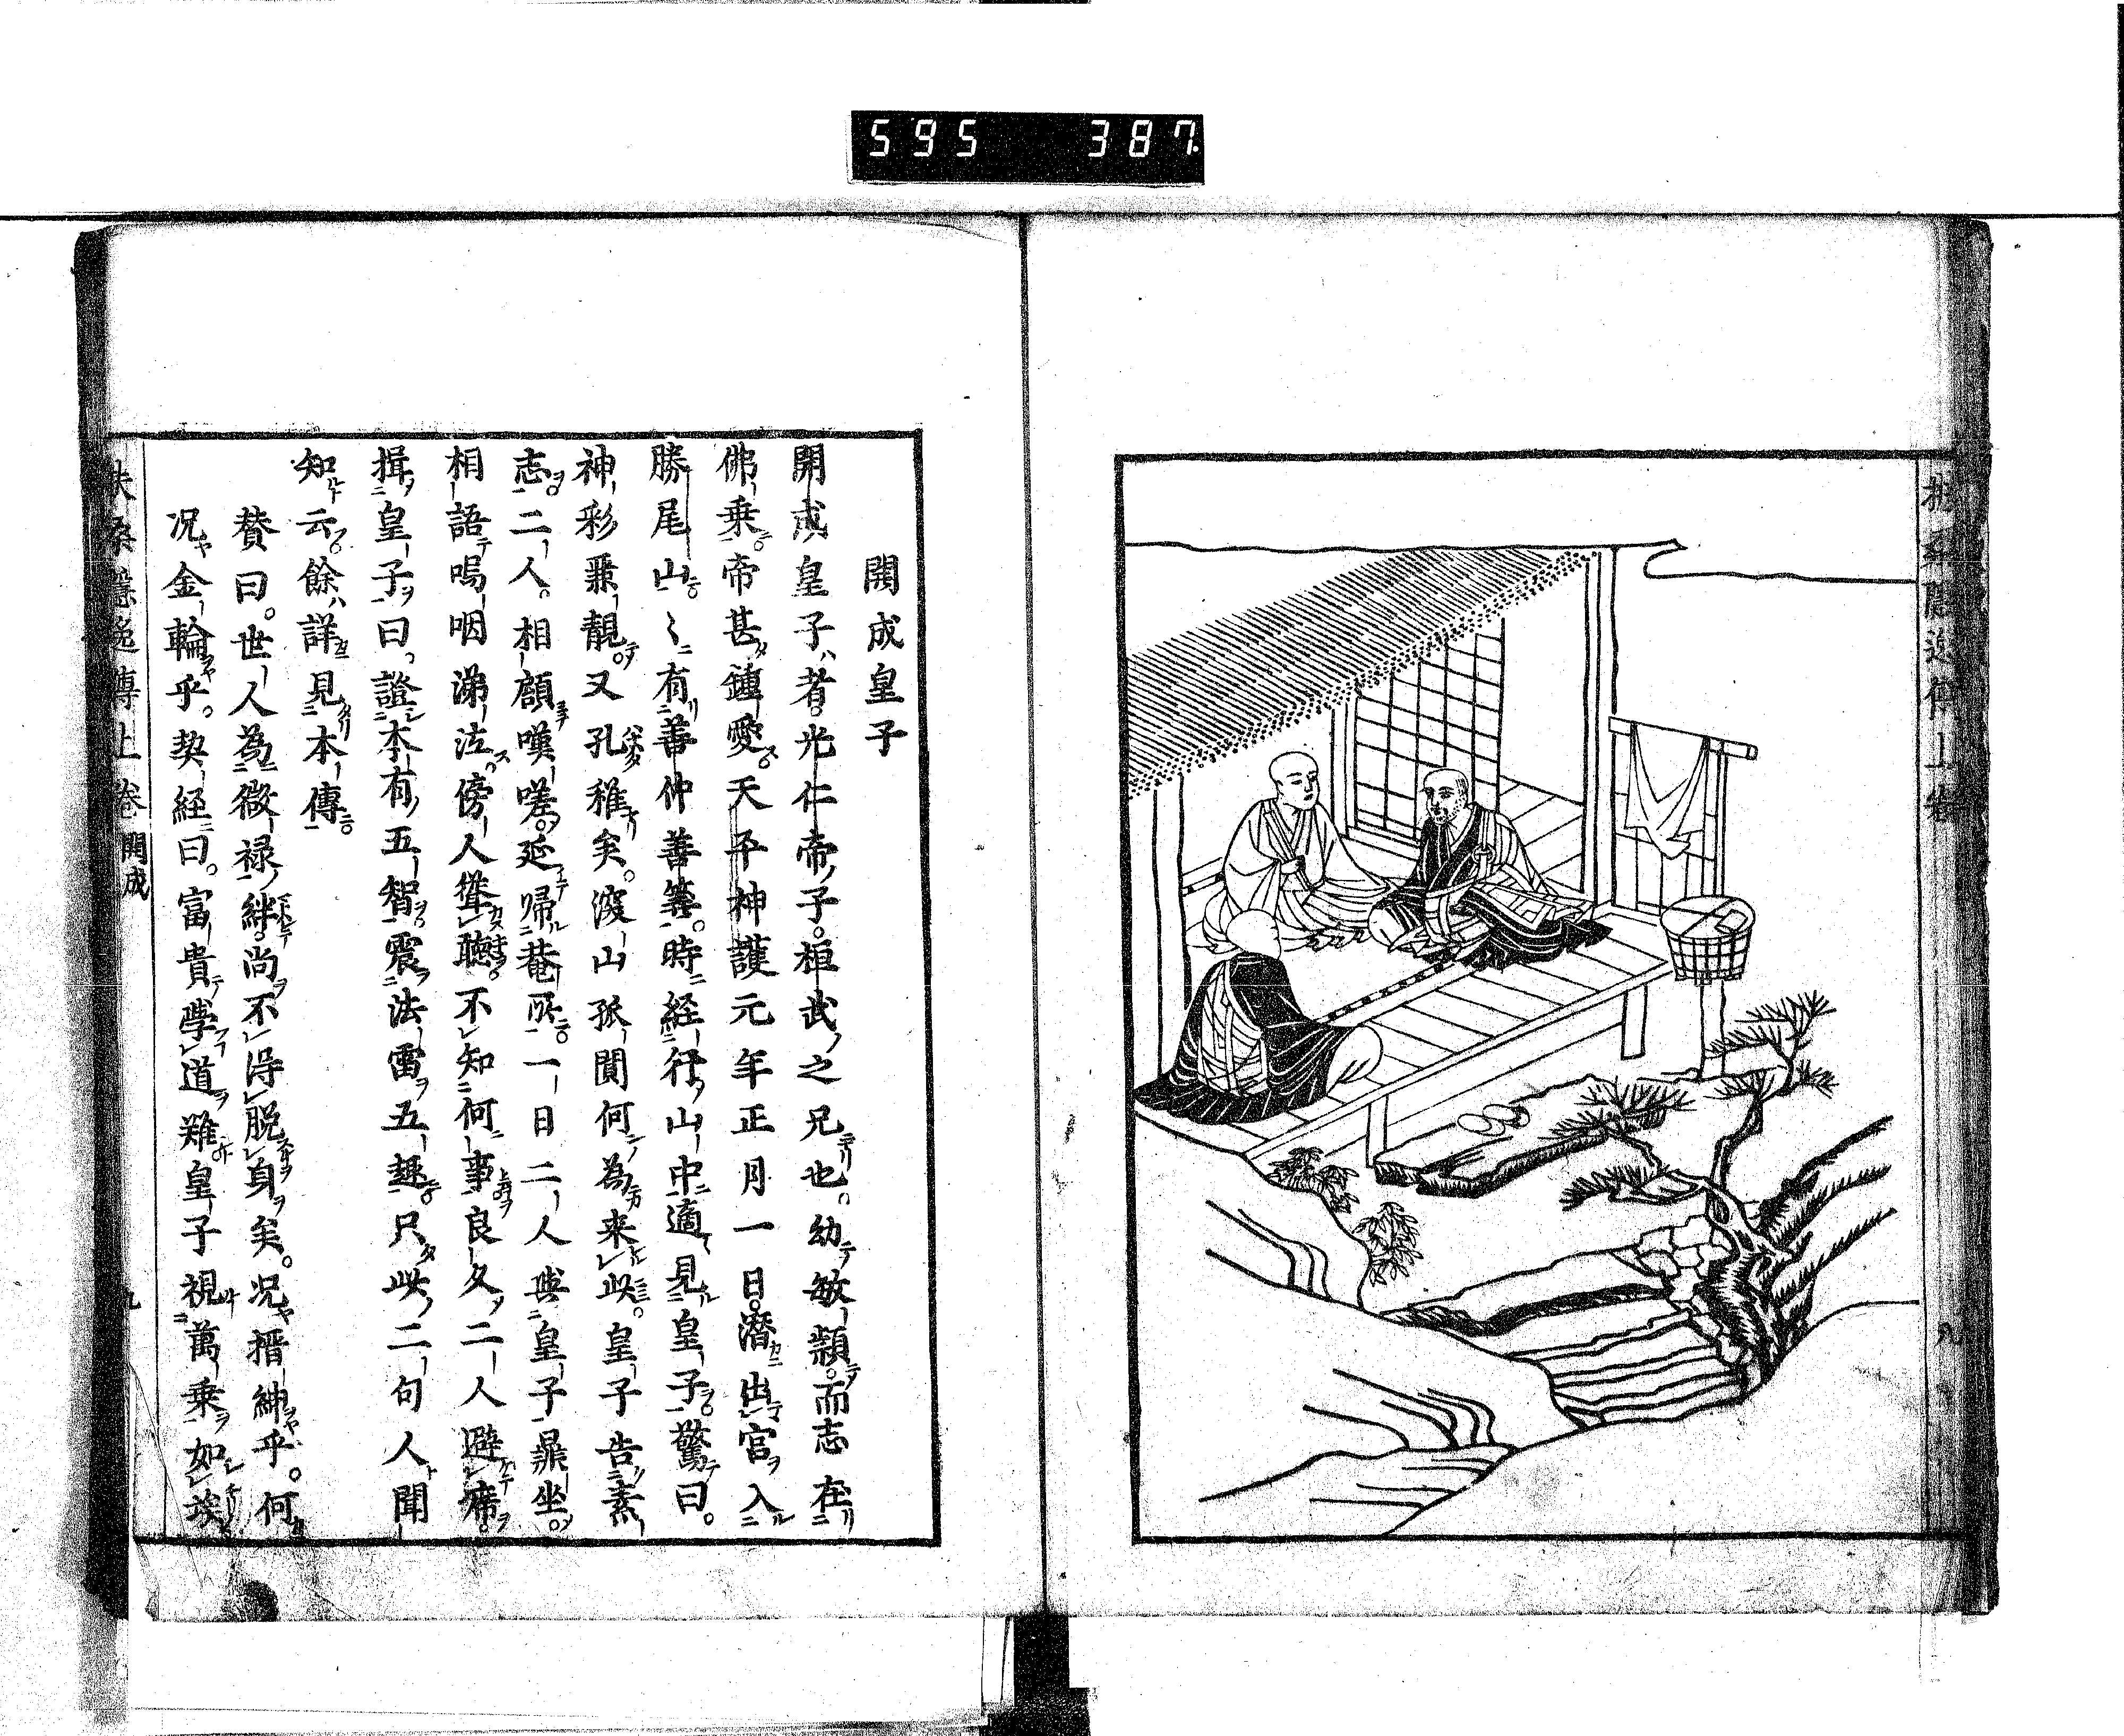 595 387
扶桑隱逸傳上卷
開成皇子
開成皇子者。光仁帝子。桓武之兄也。幼敏頴。而志在
佛乗。帝甚鍾愛。天平神護元年正月一日。潛出宮入
勝尾山。〻有善仲善筭。時経行山中。適見皇子。驚曰。
神彩粛靚。又孔稚矣。深山孤閴何為来此。皇子告素
志。二人。相顧嘆嗟。延帰菴所。一日二人與皇子鼎坐。
相語嗚咽涕泣。傍人聳聴。不知何事。良久二人避席。
揖皇子曰。證本有五智。震法雷五趣。只此二句人聞
知云。餘詳見本傳。
賛曰。世人為微禄絆。尚不得脱身矣。况搢紳乎。何
况金輪乎。契経曰。富貴學道難。皇子視萬乗如涕
扶桑隱逸傳上卷 開成 九